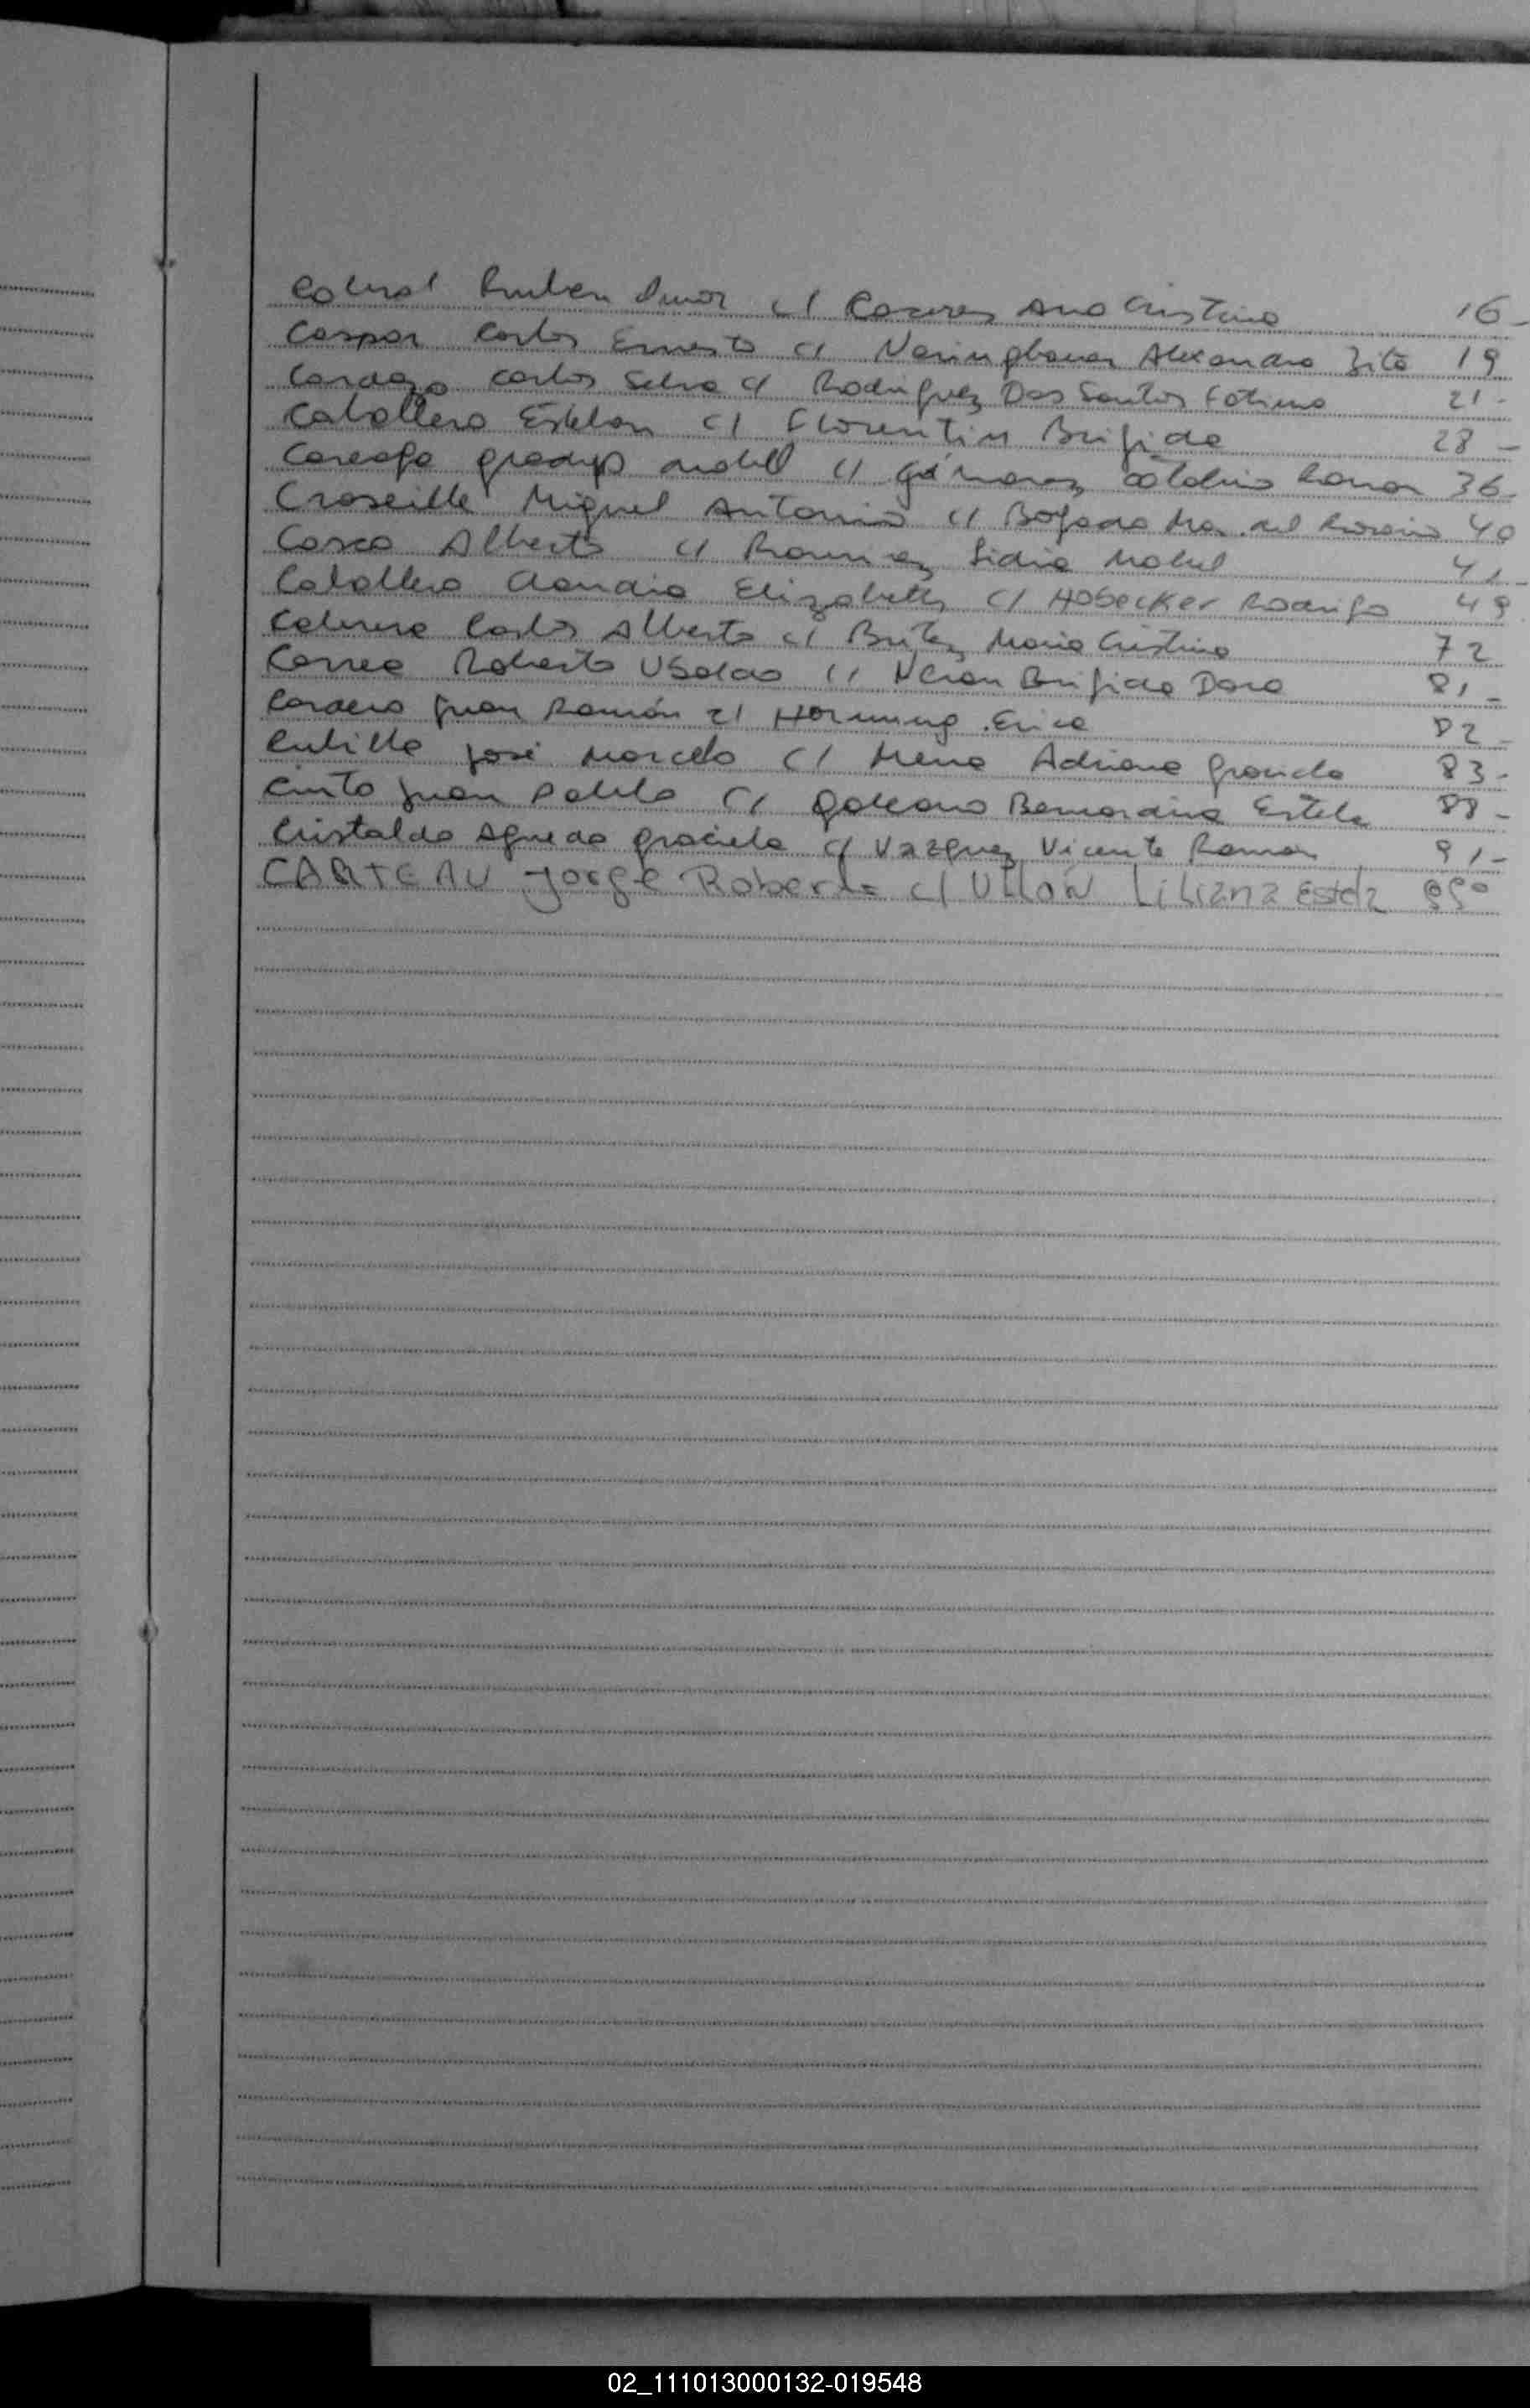 Cabral Ruben c/ Caceres Ana Cristina 16-
Caspar Carlos Ernesto c/ Alexandra Zita 19
Cardozo Carlos Selva c/ Rodriguez Dos Santos Fatima 21-
Caballero Esteban c/ Florentin Brigida 28-
Careaga Gladys Mabel c/ Gamarra Catalino Ramon 36-
Croseille Miguel Antonio c/ Bogado Ma. del Rosario 40
Casco Alberto c/ Ramirez Lidia Mabel 41-
Caballero Claudia Elizabeth c/ Hobecker Rodrigo 49
Cabrera Carlos Alberto c/ Britez Maria Cristina 72
Correa Roberto Ubaldo c/ Brigida Dora 81-
Cordero Juan Ramón c/ Hornung Erica 82-
Cubilla José Marcelo c/ Mena Adriana Graciela 83-
Cinto Juan Pablo c/ Galeano Bernardina Estela 88-
Cristaldo Agueda Graciela c/ Vazquez Vicente Ramon 91-
CARTEAU Jorge Roberto c/ Ullon Liliana Estela
02_111013000132-019548